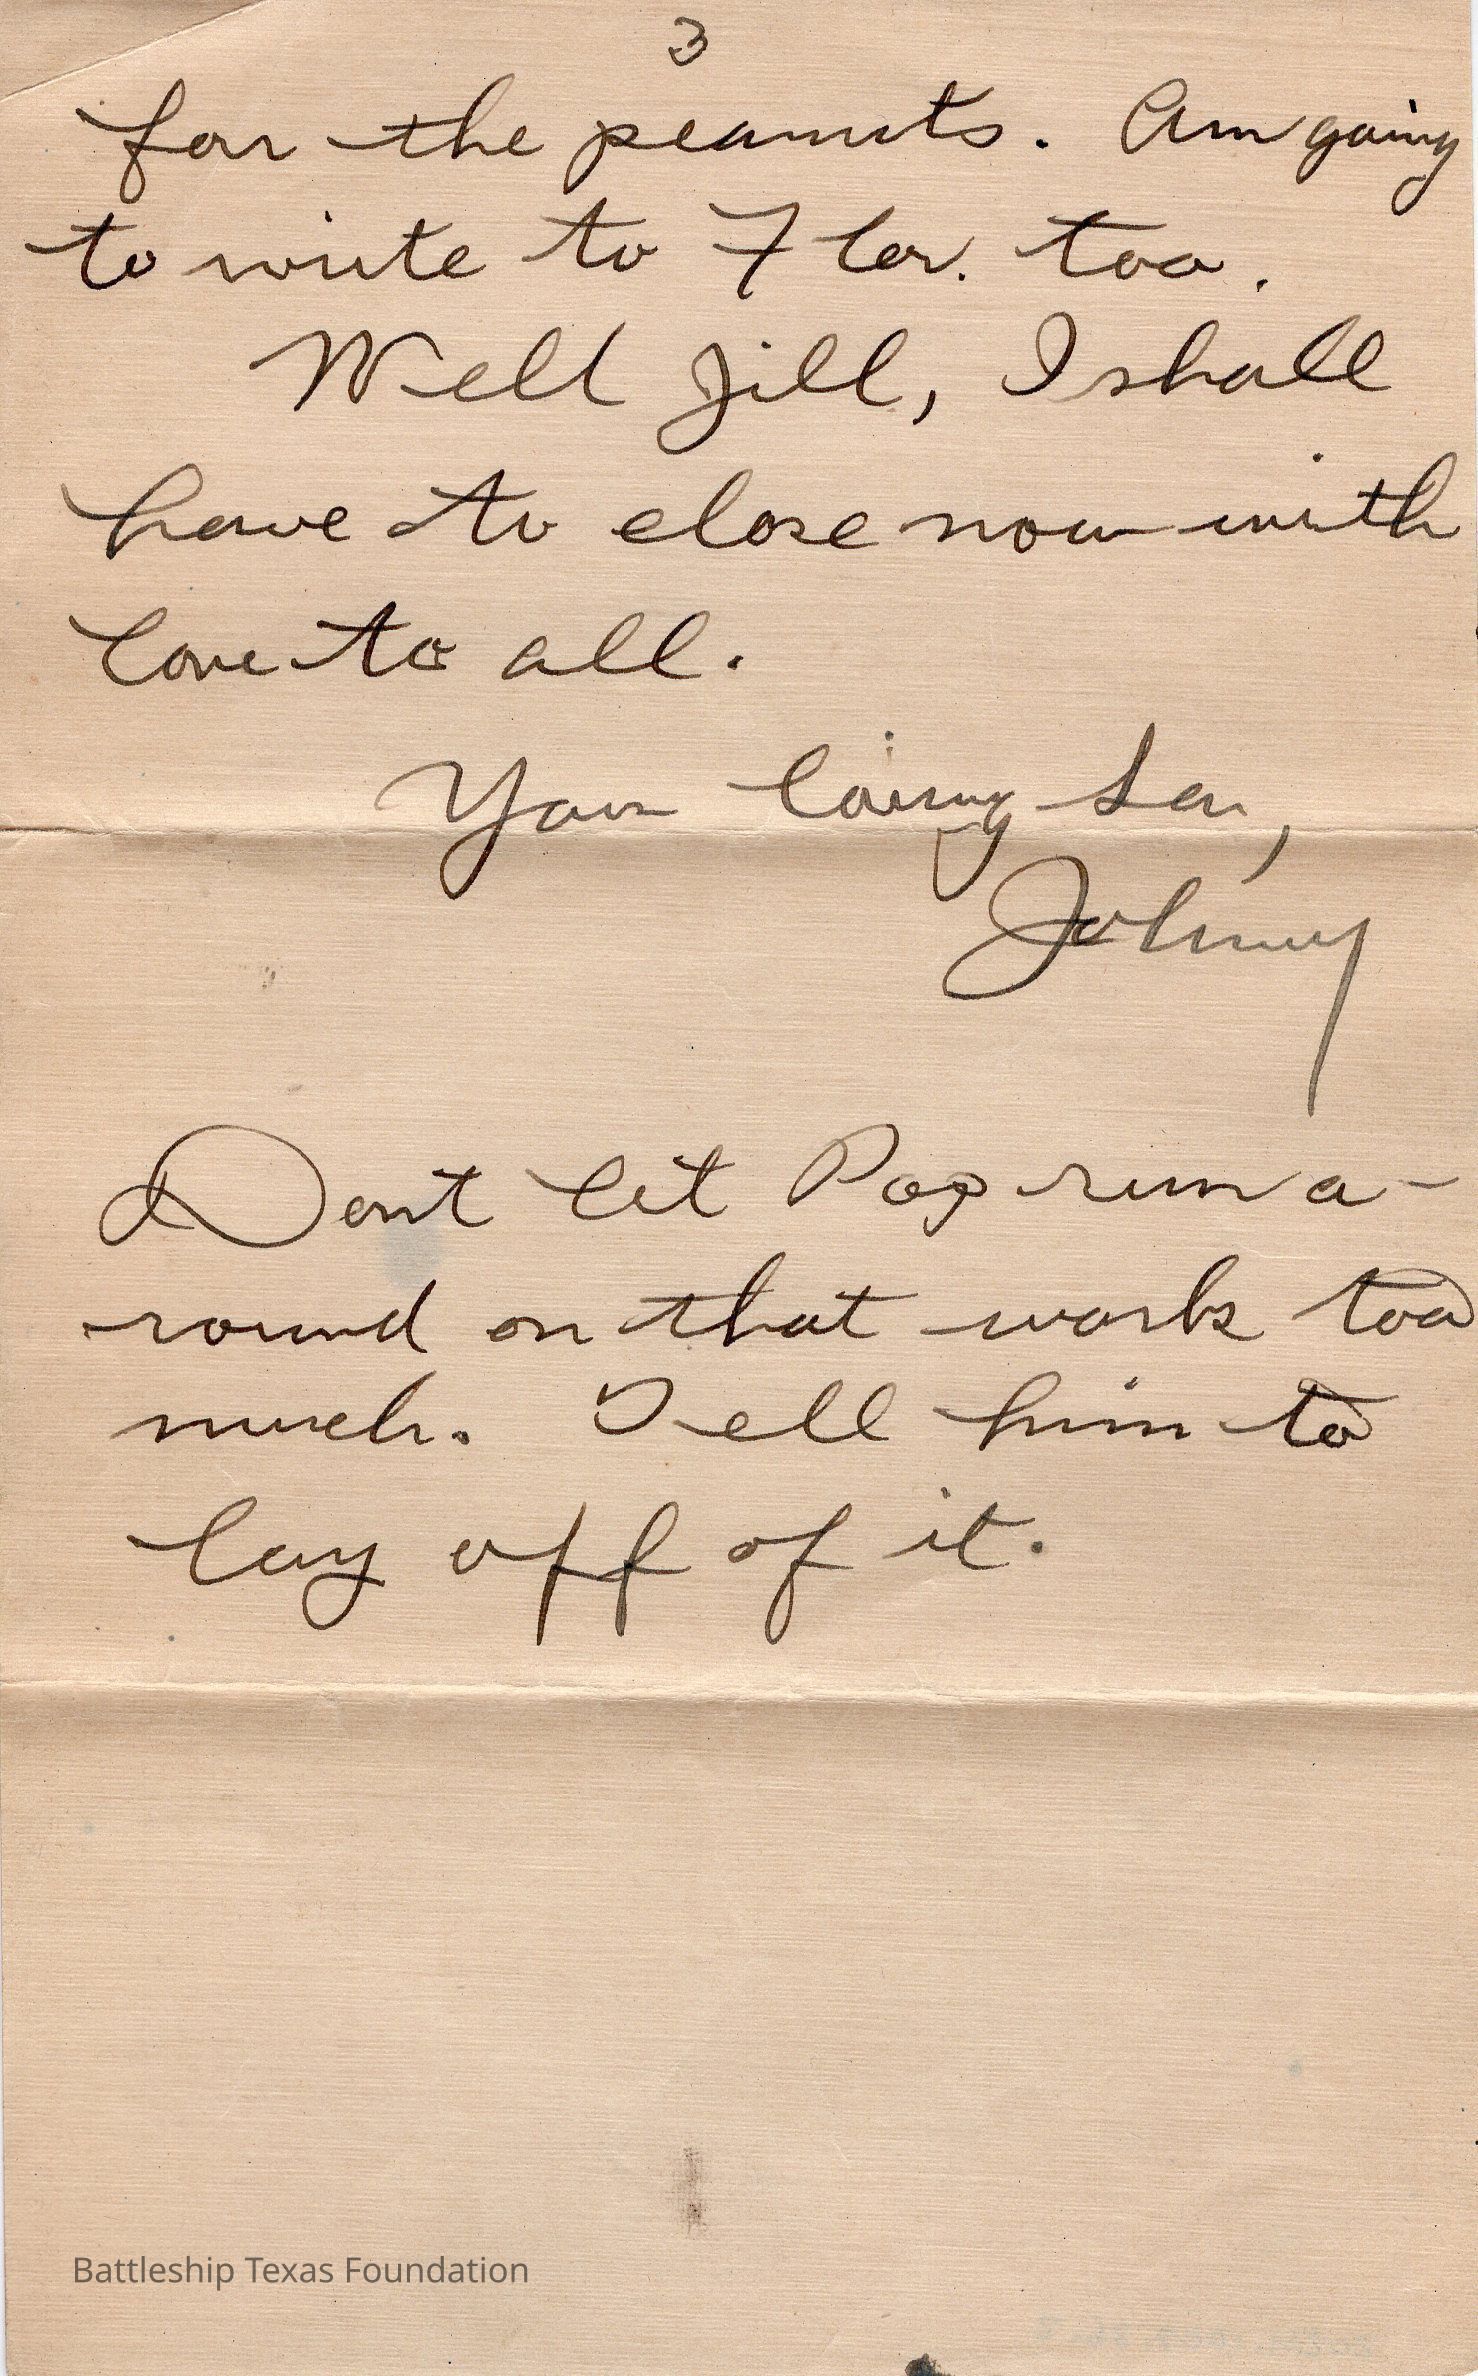 3
for the peanuts. Am going
to write to Flor. too.
Well Jill, I shall
have to close now with
love to all.
Your loving Son,
Johnny
Dont let Pop run a-
round on that work too
much. Tell him to
lay off of it.
Battleship Texas Foundation